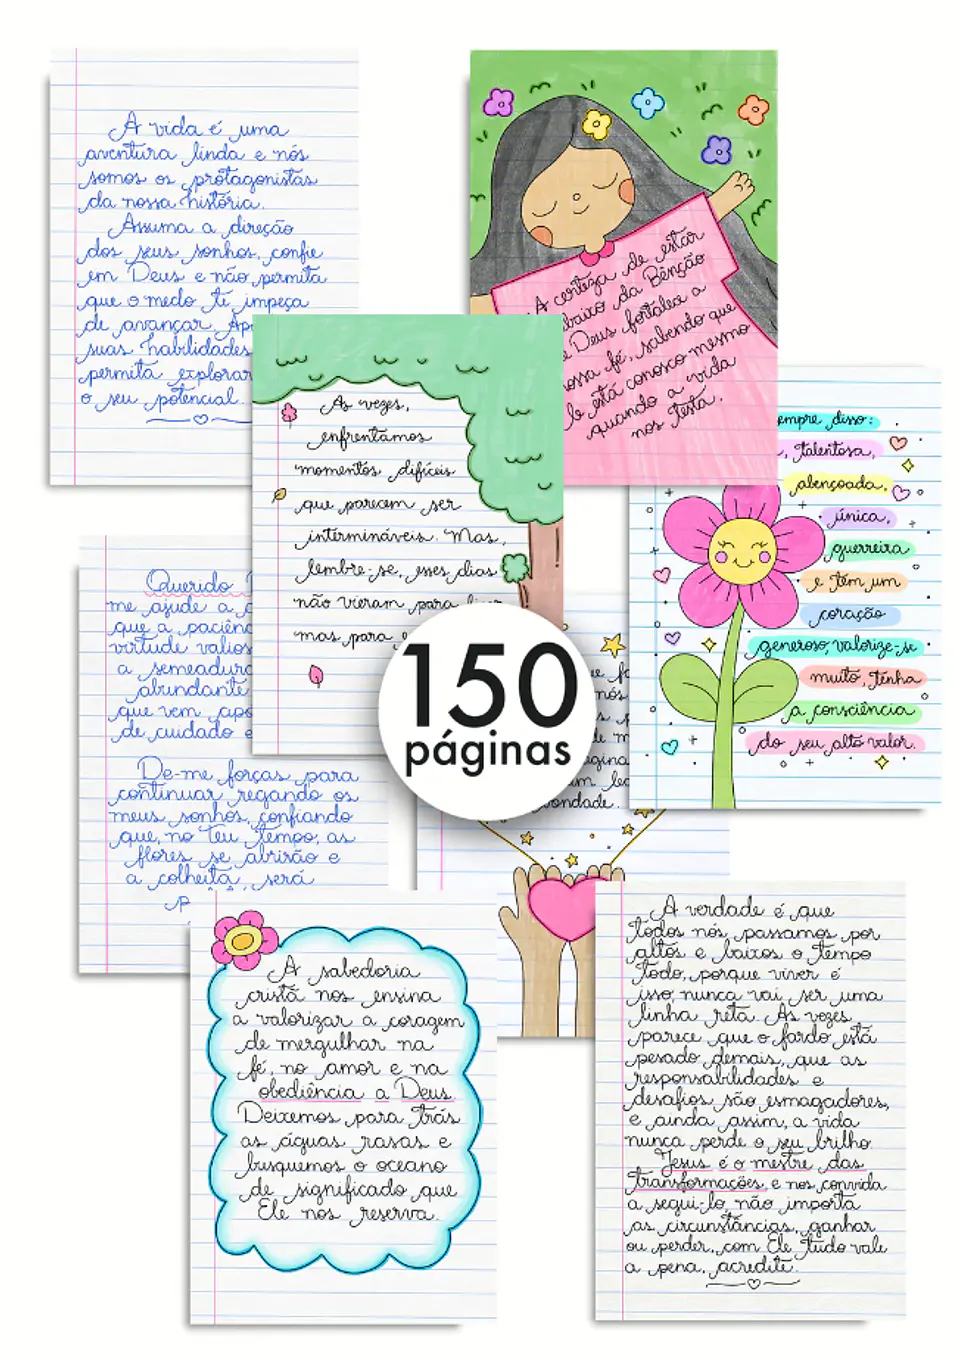 A vida é uma
aventura linda e nós
somos os protagonistas
da nossa história.
Assuma a direção
dos seus sonhos, confie
em Deus e não permita
que o medo te impeça
de avançar.
suas habilidades
permita explorar
o seu potencial.
A certeza de estar
da Bênção
Deus fortalece a
fé, sabendo que
está conosco mesmo
quando a vida
nos testa.
Às vezes,
enfrentamos
momentos difíceis
que parecem ser
intermináveis. Mas,
lembre-se, esses dias
não vieram para
mas para
disso:
talentosa,
abençoada,
única,
guerreira
e têm um
coração
generoso, valorize-se
muito, tenha
a consciência
do seu alto valor.
Querido
me ajude a
que a
virtude
a semeadura
abundante
que vem
de cuidado e
Dê-me forças para
continuar regando os
meus sonhos, confiando
que, no Teu tempo, as
flores se abrirão e
a colheita, será
150
páginas
A sabedoria
cristã nos ensina
a valorizar a coragem
de mergulhar na
fé, no amor e na
obediência a Deus
Deixemos para trás
as águas rasas e
busquemos o oceano
de significado que
Ele nos reserva.
A verdade é que
todos nós, passamos por
altos e baixos o tempo
todo, porque viver é
isso, nunca vai ser uma
linha reta. Às vezes
parece que o fardo está
pesado demais, que as
responsabilidades e
desafios são esmagadores,
e ainda assim, a vida
nunca perde o seu brilho.
Jesus é o mestre das
transformações, e nos convida
a segui-lo, não importa
as circunstâncias, ganhar
ou perder, com Ele tudo vale
a pena, acredite.